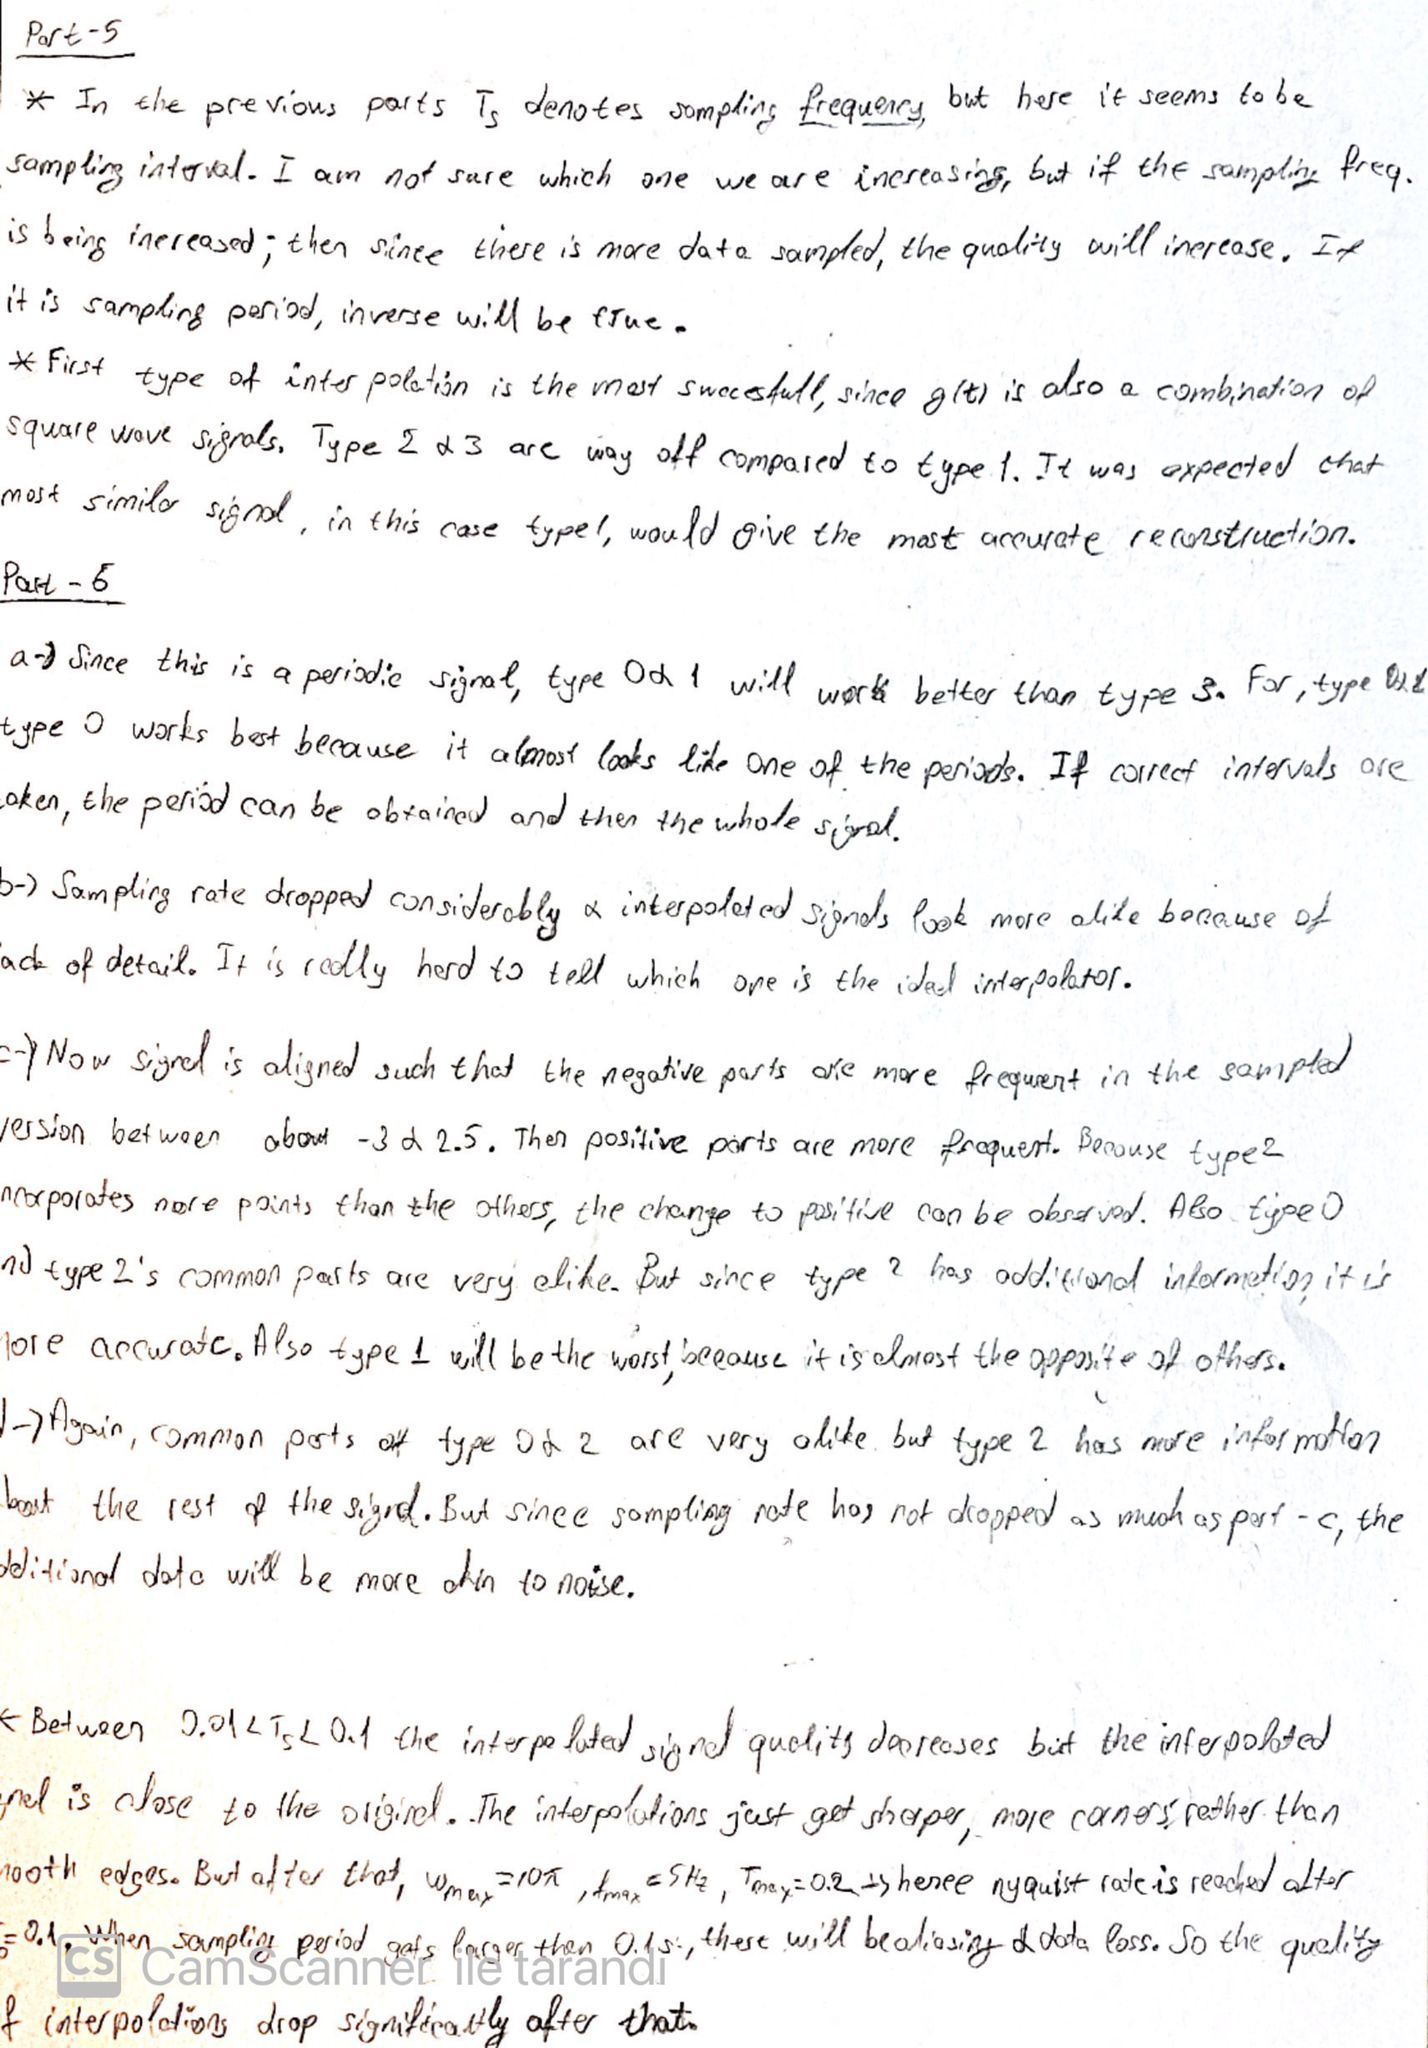 Part-5
* In the previous parts Ts denotes sampling frequency, but here it seems to be
sampling interval. I am not sure which one we are increasing, but if the sampling freq.
is being increased; then since there is more data sampled, the quality will increase. If
it is sampling period, inverse will be true.
* First type of interpolation is the most succesfull, since g(t) is also a combination of
square wave signals. Type 2 & 3 are way off compared to type 1. It was expected that
most similar signal, in this case type 1, would give the most accurate reconstruction.
Part - 6
a-) Since this is a periodic signal, type 0 & 1 will work better than type 3. For, type 0&1
type 0 works best because it almost looks like one of the periods. If correct intervals are
aken, the period can be obtained and then the whole signal.
b-) Sampling rate dropped considerably & interpolated signals look more alike because of
ack of detail. It is really hard to tell which one is the ideal interpolator.
c-) Now signal is aligned such that the negative parts are more frequent in the sampled
version between about -3 & 2.5. Then positive parts are more frequent. Because type 2
ncorporates more points than the others, the change to positive can be observed. Also type 0
nd type 2's common parts are very alike. But since type 2 has additional information, it is
more accurate. Also type 1 will be the worst, because it is almost the opposite of others.
d-) Again, common parts of type 0 & 2 are very alike but type 2 has more information
bout the rest of the signal. But since sampling rate has not dropped as much as part - c, the
dditional data will be more akin to noise.
* Between 0.01 < Ts < 0.1 the interpolated signal quality decreases but the interpolated
gnal is close to the original. The interpolations just get sharper, more corners, rather than
mooth edges. But after that, wmax = 10π, fmax = 5Hz, Tmax = 0.2 => hence nyquist rate is reached after
= 0.1. When sampling period gets larger than 0.1s, there will be aliasing & data loss. So the quality
CS CamScanner ile tarandı
f interpolations drop significantly after that.